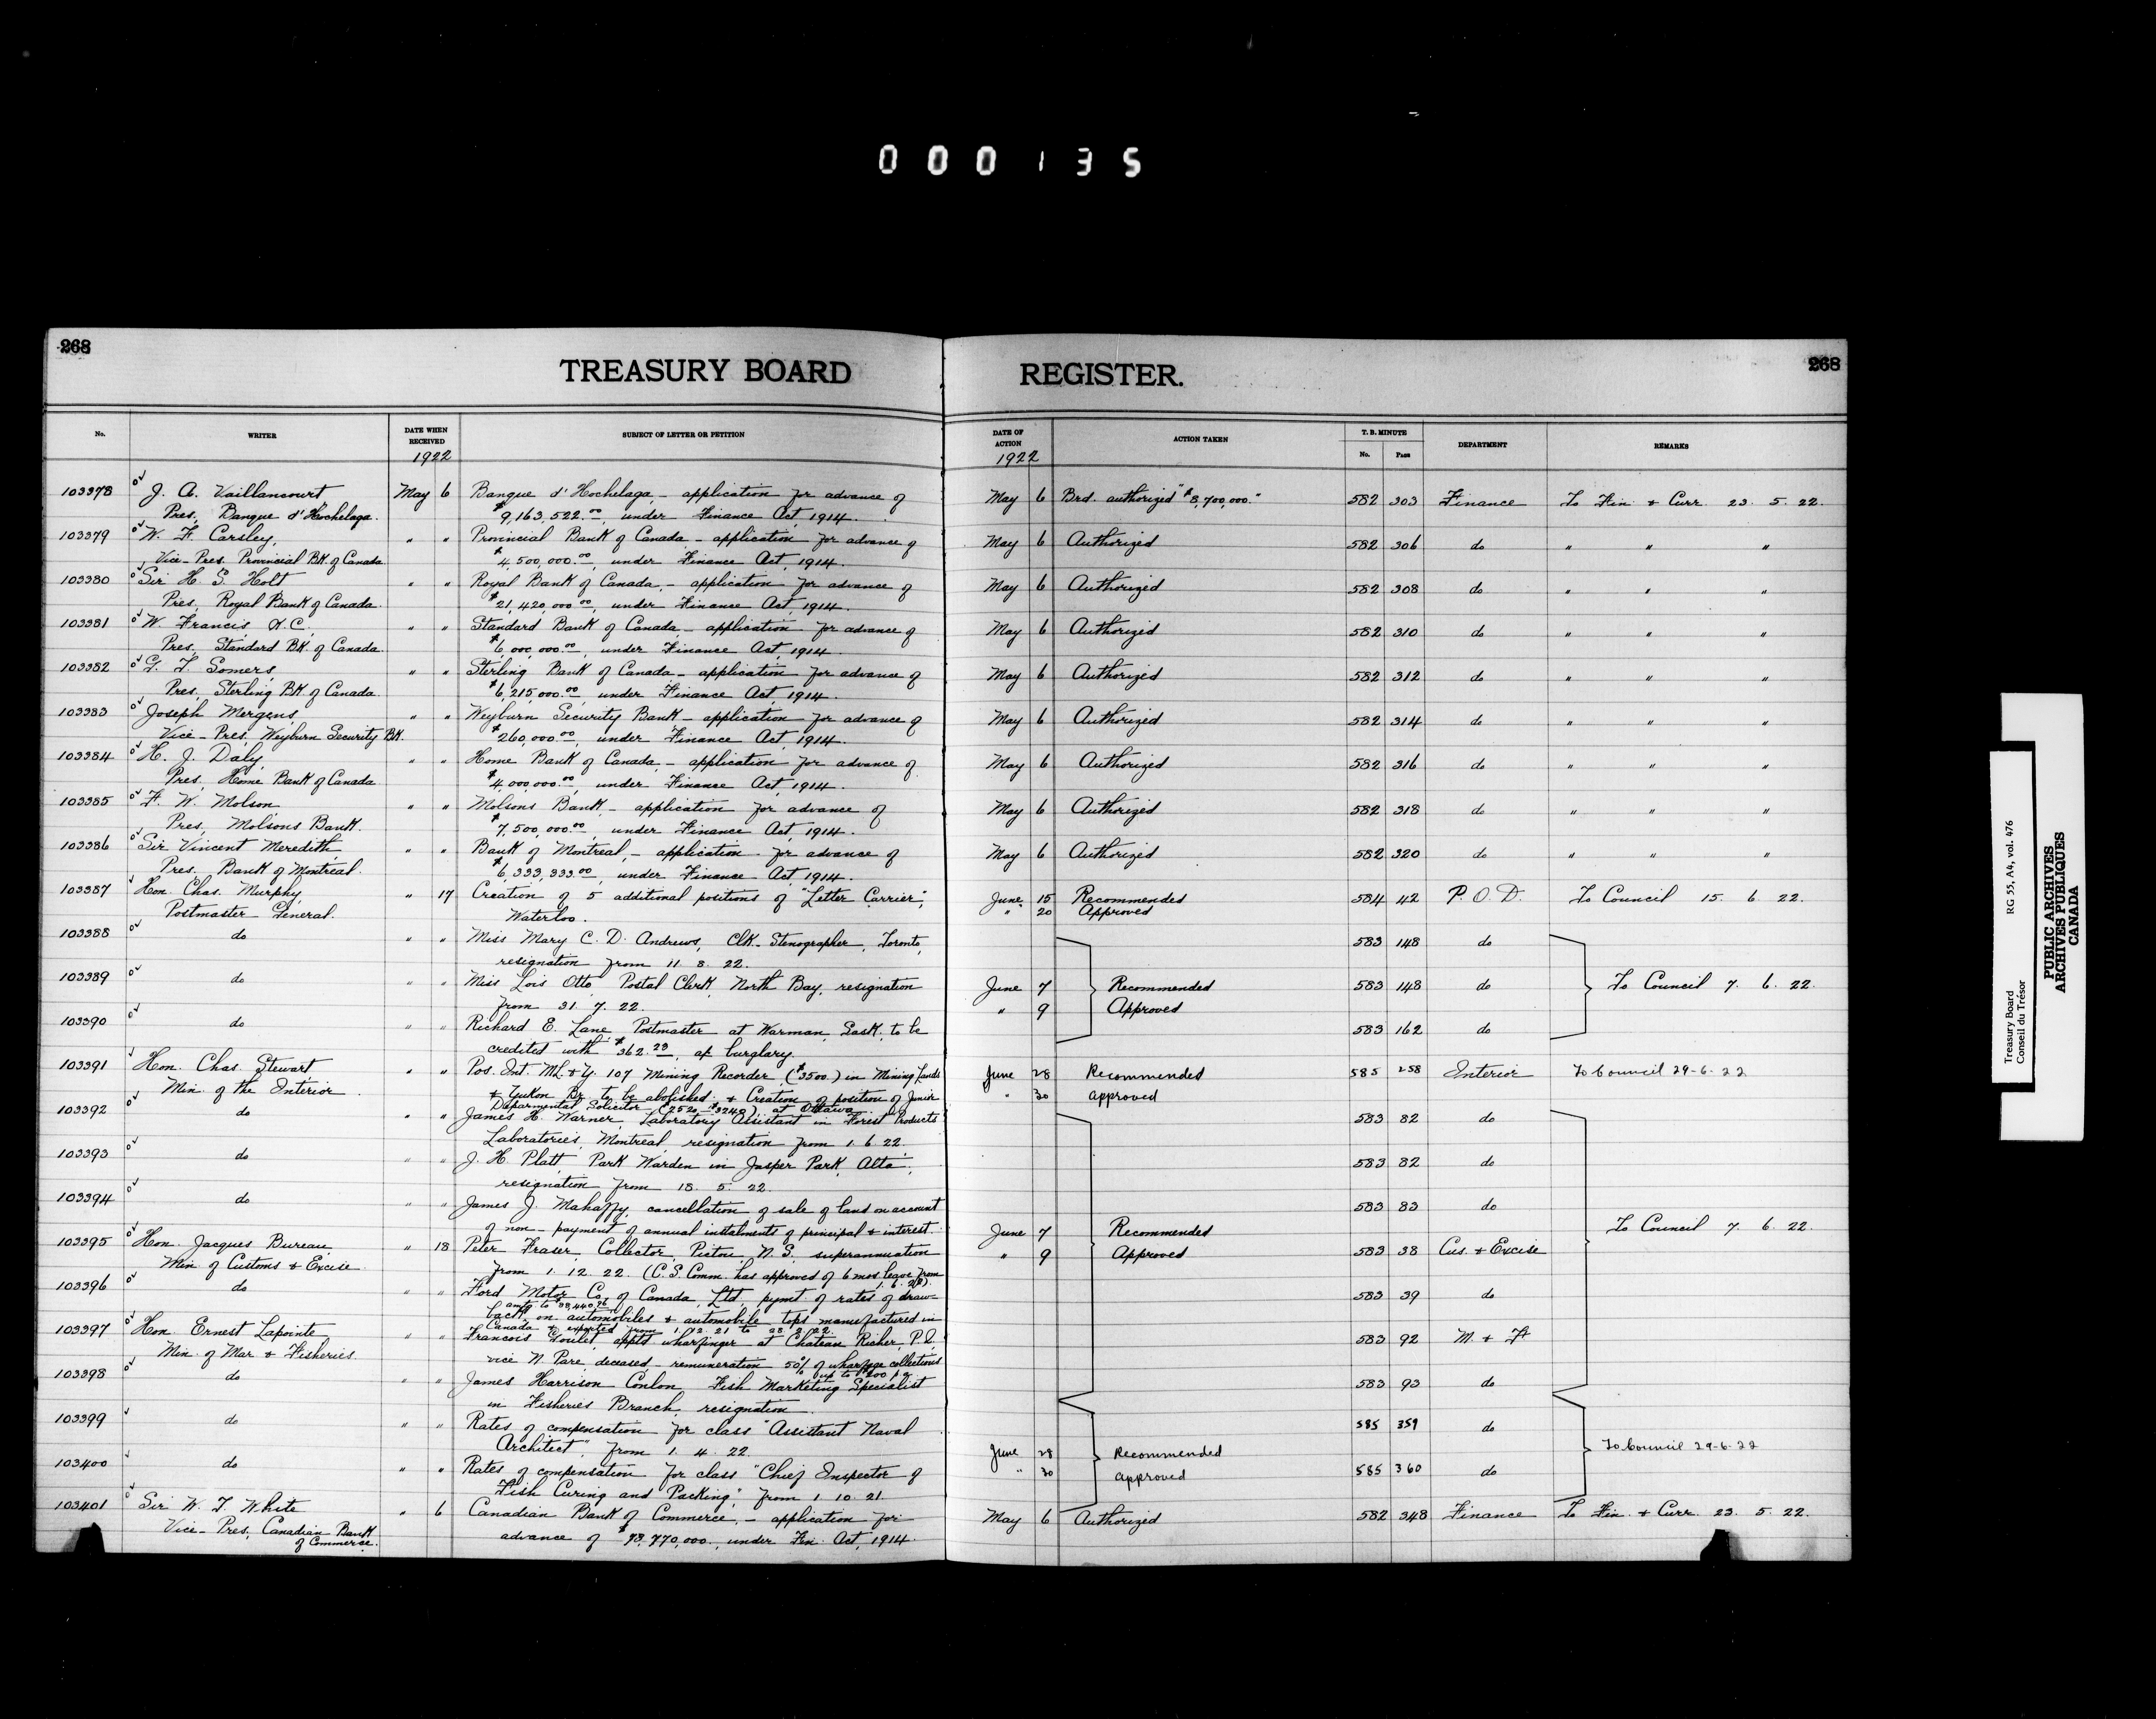 000135
268
TREASURY BOARD REGISTER.
268
No. WRITER DATE WHEN RECEIVED SUBJECT OF LETTER OR PETITION DATE OF ACTION ACTION TAKEN T. B. MINUTE No. Page DEPARTMENT REMARKS
1922 1922
103378 J. A. Vaillancourt May 6 Banque d'Hochelaga, - application for advance of May 6 Brd. authorized "$8,700,000." 582 303 Finance To Fin. & Curr. 23. 5. 22.
Pres. Banque d'Hochelaga. $9,163,522.00, under Finance Act, 1914.
103379 W. F. Carsley, " " Provincial Bank of Canada - application for advance of May 6 Authorized 582 306 do " " "
Vice-Pres. Provincial BK. of Canada $4,500,000.00, under Finance Act, 1914.
103380 Sir H. S. Holt " " Royal Bank of Canada, - application for advance of May 6 Authorized 582 308 do " " "
Pres. Royal Bank of Canada. $21,420,000.00, under Finance Act, 1914.
103381 W. Francis K.C. " " Standard Bank of Canada, - application for advance of May 6 Authorized 582 310 do " " "
Pres. Standard BK. of Canada. $6,000,000.00, under Finance Act, 1914.
103382 G. T. Somers, " " Sterling Bank of Canada - application for advance of May 6 Authorized 582 312 do " " "
Pres. Sterling BK of Canada. $6,215,000.00, under Finance Act, 1914.
103383 Joseph Mergens, " " Weyburn Security Bank - application for advance of May 6 Authorized 582 314 do " " "
Vice-Pres. Weyburn Security BK. $260,000.00, under Finance Act, 1914.
103384 H. J. Daly, " " Home Bank of Canada, - application for advance of May 6 Authorized 582 316 do " " "
Pres. Home Bank of Canada $4,000,000.00, under Finance Act, 1914.
103385 F. W. Molson " " Molsons Bank, - application for advance of May 6 Authorized 582 318 do " " "
Pres. Molsons Bank. $7,500,000.00, under Finance Act, 1914.
103386 Sir Vincent Meredith " " Bank of Montreal, - application for advance of May 6 Authorized 582 320 do " " "
Pres. Bank of Montreal. $6,333,333.00, under Finance Act, 1914.
103387 Hon. Chas. Murphy, " 17 Creation of 5 additional positions of "Letter Carrier," June 15 Recommended 584 42 P. O. D. To Council 15. 6. 22.
Postmaster General. Waterloo. " 20 Approved
103388 do " " Miss Mary C. D. Andrews, Clk-Stenographer, Toronto, 583 148 do
resignation from 11. 8. 22.
103389 do " " Miss Lois Otto, Postal Clerk, North Bay, resignation June 7 Recommended 583 148 do To Council 7. 6. 22.
from 31. 7. 22. " 9 Approved
103390 do " " Richard E. Lane, Postmaster at Warman, Sask. to be 583 162 do
credited with $362.23, a/c burglary.
103391 Hon. Chas. Stewart " " Pos. Int. ML. & Y. 107 Mining Recorder ($3500.) in Mining Lands June 28 Recommended 585 258 Interior To Council 29-6-22
Min. of the Interior & Yukon Br. to be abolished & Creation of position of Junior " 30 approved
Deparmental Solicitor ($2520-$3240) at Ottawa
103392 do " " James H. Warner, Laboratory Assistant in Forest Products 583 82 do
Laboratories, Montreal, resignation from 1. 6. 22.
103393 do " " J. H. Platt, Park Warden in Jasper Park, Alta., 583 82 do
resignation from 18. 5. 22.
103394 do " " James J. Mahaffy, cancellation of sale of land on account 583 83 do
of non-payment of annual instalments of principal & interest. June 7 Recommended To Council 7. 6. 22.
103395 Hon. Jacques Bureau, " 18 Peter Fraser, Collector, Pictou, N. S. superannuation " 9 Approved 583 38 Cus. & Excise
Min. of Customs & Excise. from 1. 12. 22. (C. S. Comm. has approved of 6 mos. leave from
103396 do " " Ford Motor Co. of Canada, Ltd. pymt. of rates of draw- 583 39 do
back, on automobiles & automobile tops manufactured in
Canada & exported from 1. 12. 21 to 28. 2. 22.
103397 Hon. Ernest Lapointe " " Francois Goulet, apptd. wharfinger at Chateau Richer, P. Q. 583 92 M. & F.
Min. of Mar. & Fisheries. vice N. Pare, deceased, - remuneration 50% of wharfage collections
up to $200 p.a.
103398 do " " James Harrison Conlon, Fish Marketing Specialist 583 93 do
in Fisheries Branch, resignation.
103399 do " " Rates of compensation for class "Assistant Naval 585 359 do
Architect", from 1. 4. 22. June 28 Recommended To Council 29-6-22
103400 do " " Rates of compensation for class "Chief Inspector of " 30 approved 585 360 do
Fish Curing and Packing", from 1. 10. 21.
103401 Sir W. T. White " 6 Canadian Bank of Commerce, - application for May 6 Authorized 582 348 Finance To Fin. & Curr. 23. 5. 22.
Vice-Pres. Canadian Bank of Commerce. advance of , under Fin. Act, 1914.
Treasury Board RG 55, A4, vol. 476
Conseil du Trésor
PUBLIC ARCHIVES
ARCHIVES PUBLIQUES
CANADA